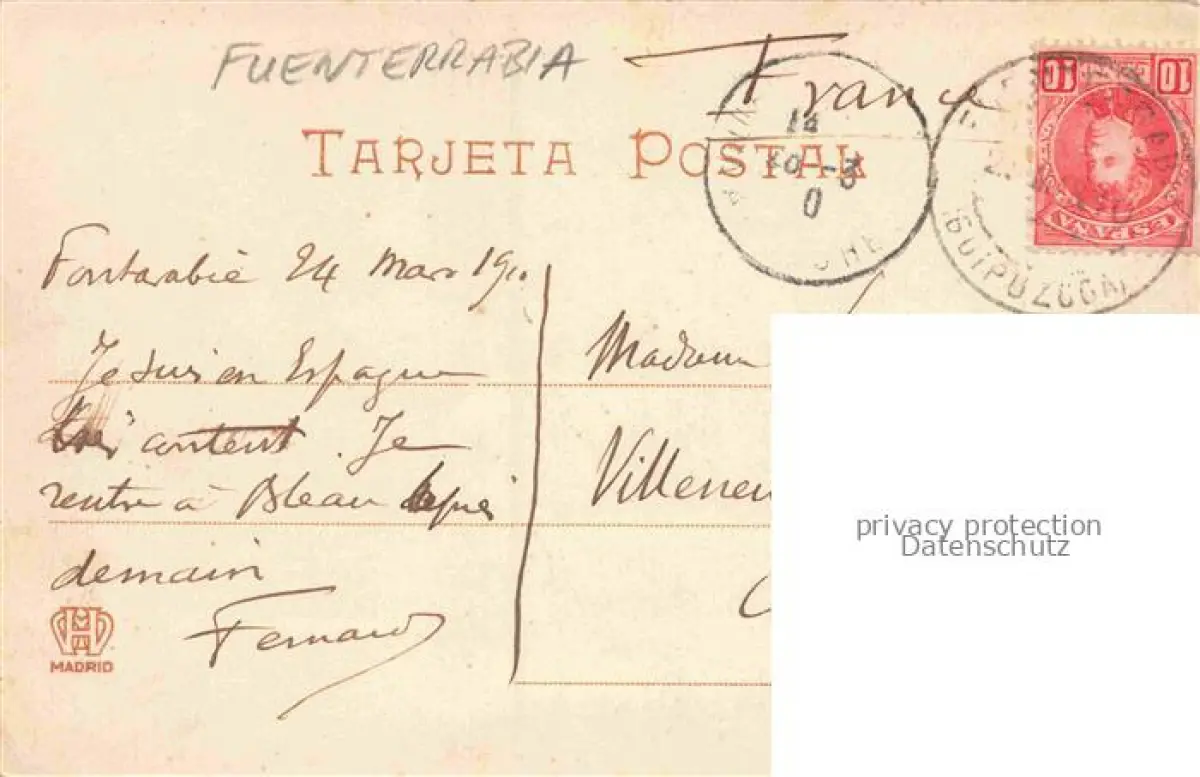 FUENTERRABIA
France
10 10
ESPAÑA
TARJETA POSTAL
10 - 3
0
GUIPUZCOA
Fontarabie 24 Mars 1910
Je suis en Espagne
très content. Je
rentre à Bleau après
demain
Fernand
Madame
Villeneu
MADRID
privacy protection
Datenschutz